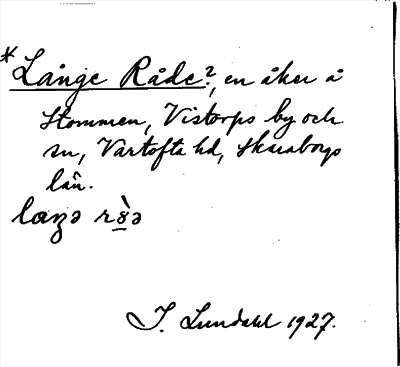 *Långe Råde?, en åker å
Stommen, Vistorps by och
sn, Vartofta hd, Skaraborgs
län.
I. Lundahl 1927.